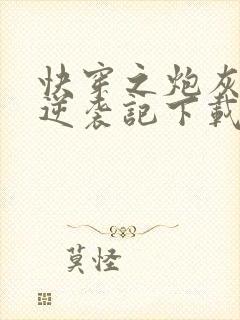 快穿之炮灰
逆袭記下載
莫怪